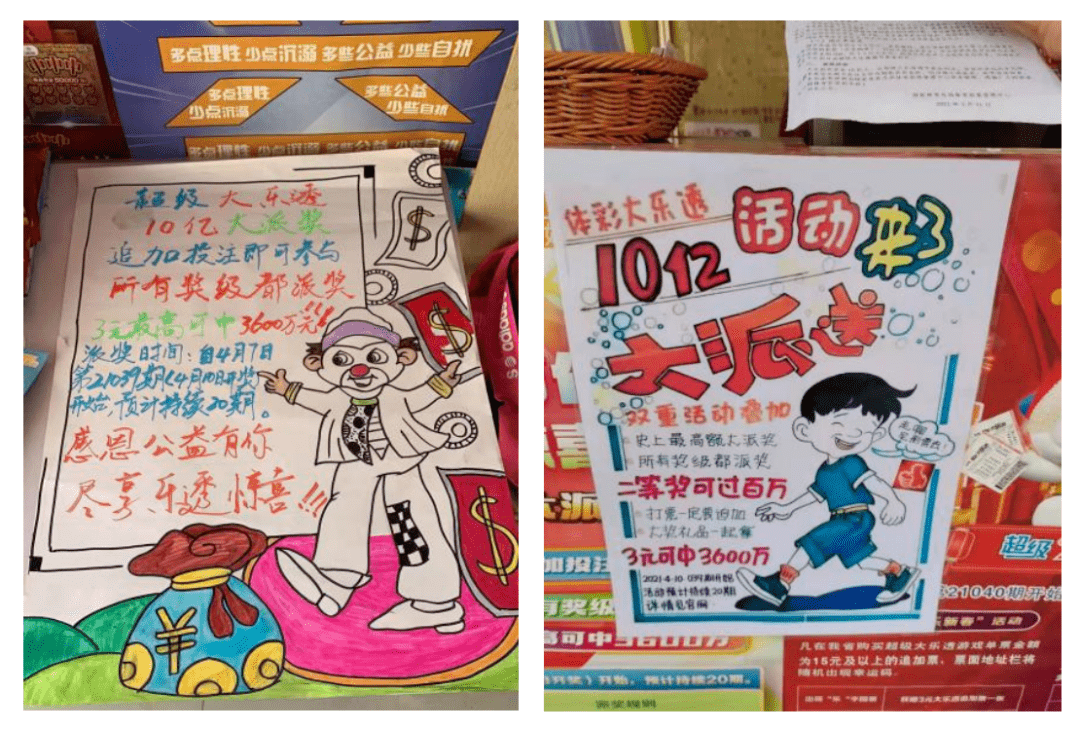 多点理性 少点沉溺 多些公益 少些自扰
多点理性
少点沉溺
多些公益
少些自扰
多点理性 少点沉溺 多些公益 少些自扰
超级大乐透
10亿大派奖
追加投注即可参与
所有奖级都派奖
3元最高可中3600万元!!
派奖时间:自4月7日
第21039期(4月10日开奖)
开始,预计持续20期。
感恩公益有你
尽享乐透惊喜!!!
体彩大乐透
活动来了
10亿
大派送
双重活动叠加
史上最高额大派奖
所有奖级都派奖
二等奖可过百万
打票一定要追加
大奖礼品一起赢
3元可中3600万
2021·4·10 039期开始
活动预计持续20期
详情见官网
超级
加投注
21040期开始
有奖级
高可中3600万
乐新春”活动
凡在我省购买超级大乐透游戏单票金额
为15元及以上的追加票、票面地址栏将
随机出现幸运码。
开奖)开始,预计持续20期。
派奖规则